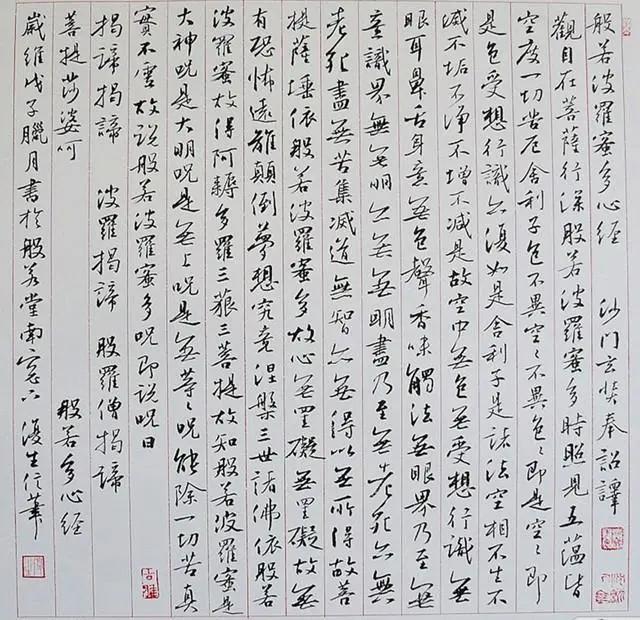 般若波羅蜜多心經 沙門玄奘奉詔譯
觀自在菩薩行深般若波羅蜜多時照見五蘊皆
空度一切苦厄舍利子色不異空〻不異色〻即是空〻即
是色受想行識亦復如是舍利子是諸法空相不生不
滅不垢不淨不增不減是故空中無色無受想行識無
眼耳鼻舌身意無色聲香味觸法無眼界乃至無
意識界無無明亦無無明盡乃至無老死亦無
老死盡無苦集滅道無智亦無得以無所得故菩
提薩埵依般若波羅蜜多故心無罣礙無罣礙故無
有恐怖遠離顛倒夢想究竟涅槃三世諸佛依般若
波羅蜜故得阿耨多羅三藐三菩提故知般若波羅蜜是
大神呪是大明呪是無上呪是無等〻呪能除一切苦真
實不虛故說般若波羅蜜多呪即說呪曰
揭諦揭諦 波羅揭諦 般羅僧揭諦
菩提莎婆呵 般若多心経
歲維戊子臘月書於般若堂南窗下 復生信筆